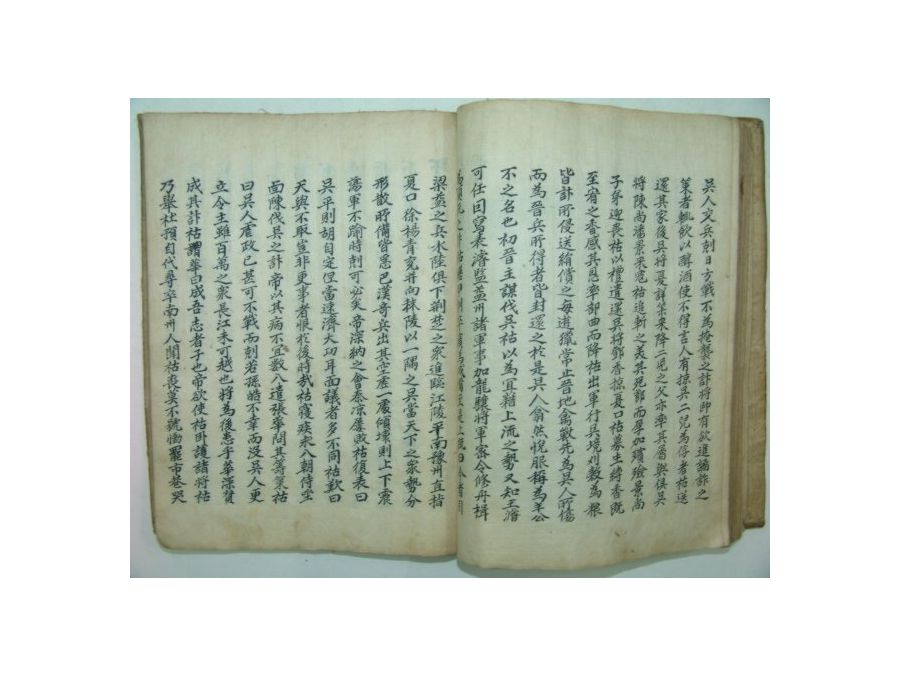 吳人交兵剋日方戰不為掩襲之計將帥有欲進譎詐之
策者輒飲以醇酒使不得言人有掠吳二兒為俘者祜送
還其家後吳將夏詳等來降二兒之父亦率其屬與俱吳
將陳尚潘景來寇祜追斬之美其死節而厚加殯殮景尚
子弟迎喪祜以禮遣還吳將鄧香掠夏口祜募生縛香既
至宥之香感其恩率部曲而降祜出軍行吳境刈穀為粮
皆計所侵送絹償之每遊獵常止晉地禽獸先為吳人所傷
而為晉兵所得者皆封還之於是吳人翕然悅服稱為羊公
不之名也初晉主謀伐吳祜以為宜藉上流之勢又知王濬
可任因寫表濬監益州諸軍事加龍驤將軍密令修舟楫
梁益之兵水陸俱下荊楚之衆進臨江陵平南豫州直指
夏口徐楊青兗并向秣陵以一隅之吳當天下之衆勢分
形散所備皆悉巴漢奇兵出其空虛一處傾壞則上下震
蕩軍不踰時剋可必矣帝深納之會秦凉屢敗祜復表曰
吳平則胡自定但當速濟大功耳而議者多不同祜歎曰
天與不取豈非更事者恨於後時哉祜寢疾求入朝侍坐
面陳伐吳之計帝以其病不宜數入遣張華問其籌策祜
曰吳人虐政已甚可不戰而剋若孫皓不幸而沒吳人更
立令主雖百萬之衆長江未可越也將為後患乎華深贊
成其計祜謂華曰成吾志者子也帝欲使祜卧護諸將祜
乃舉杜預自代尋卒南州人聞祜喪莫不號慟罷市巷哭